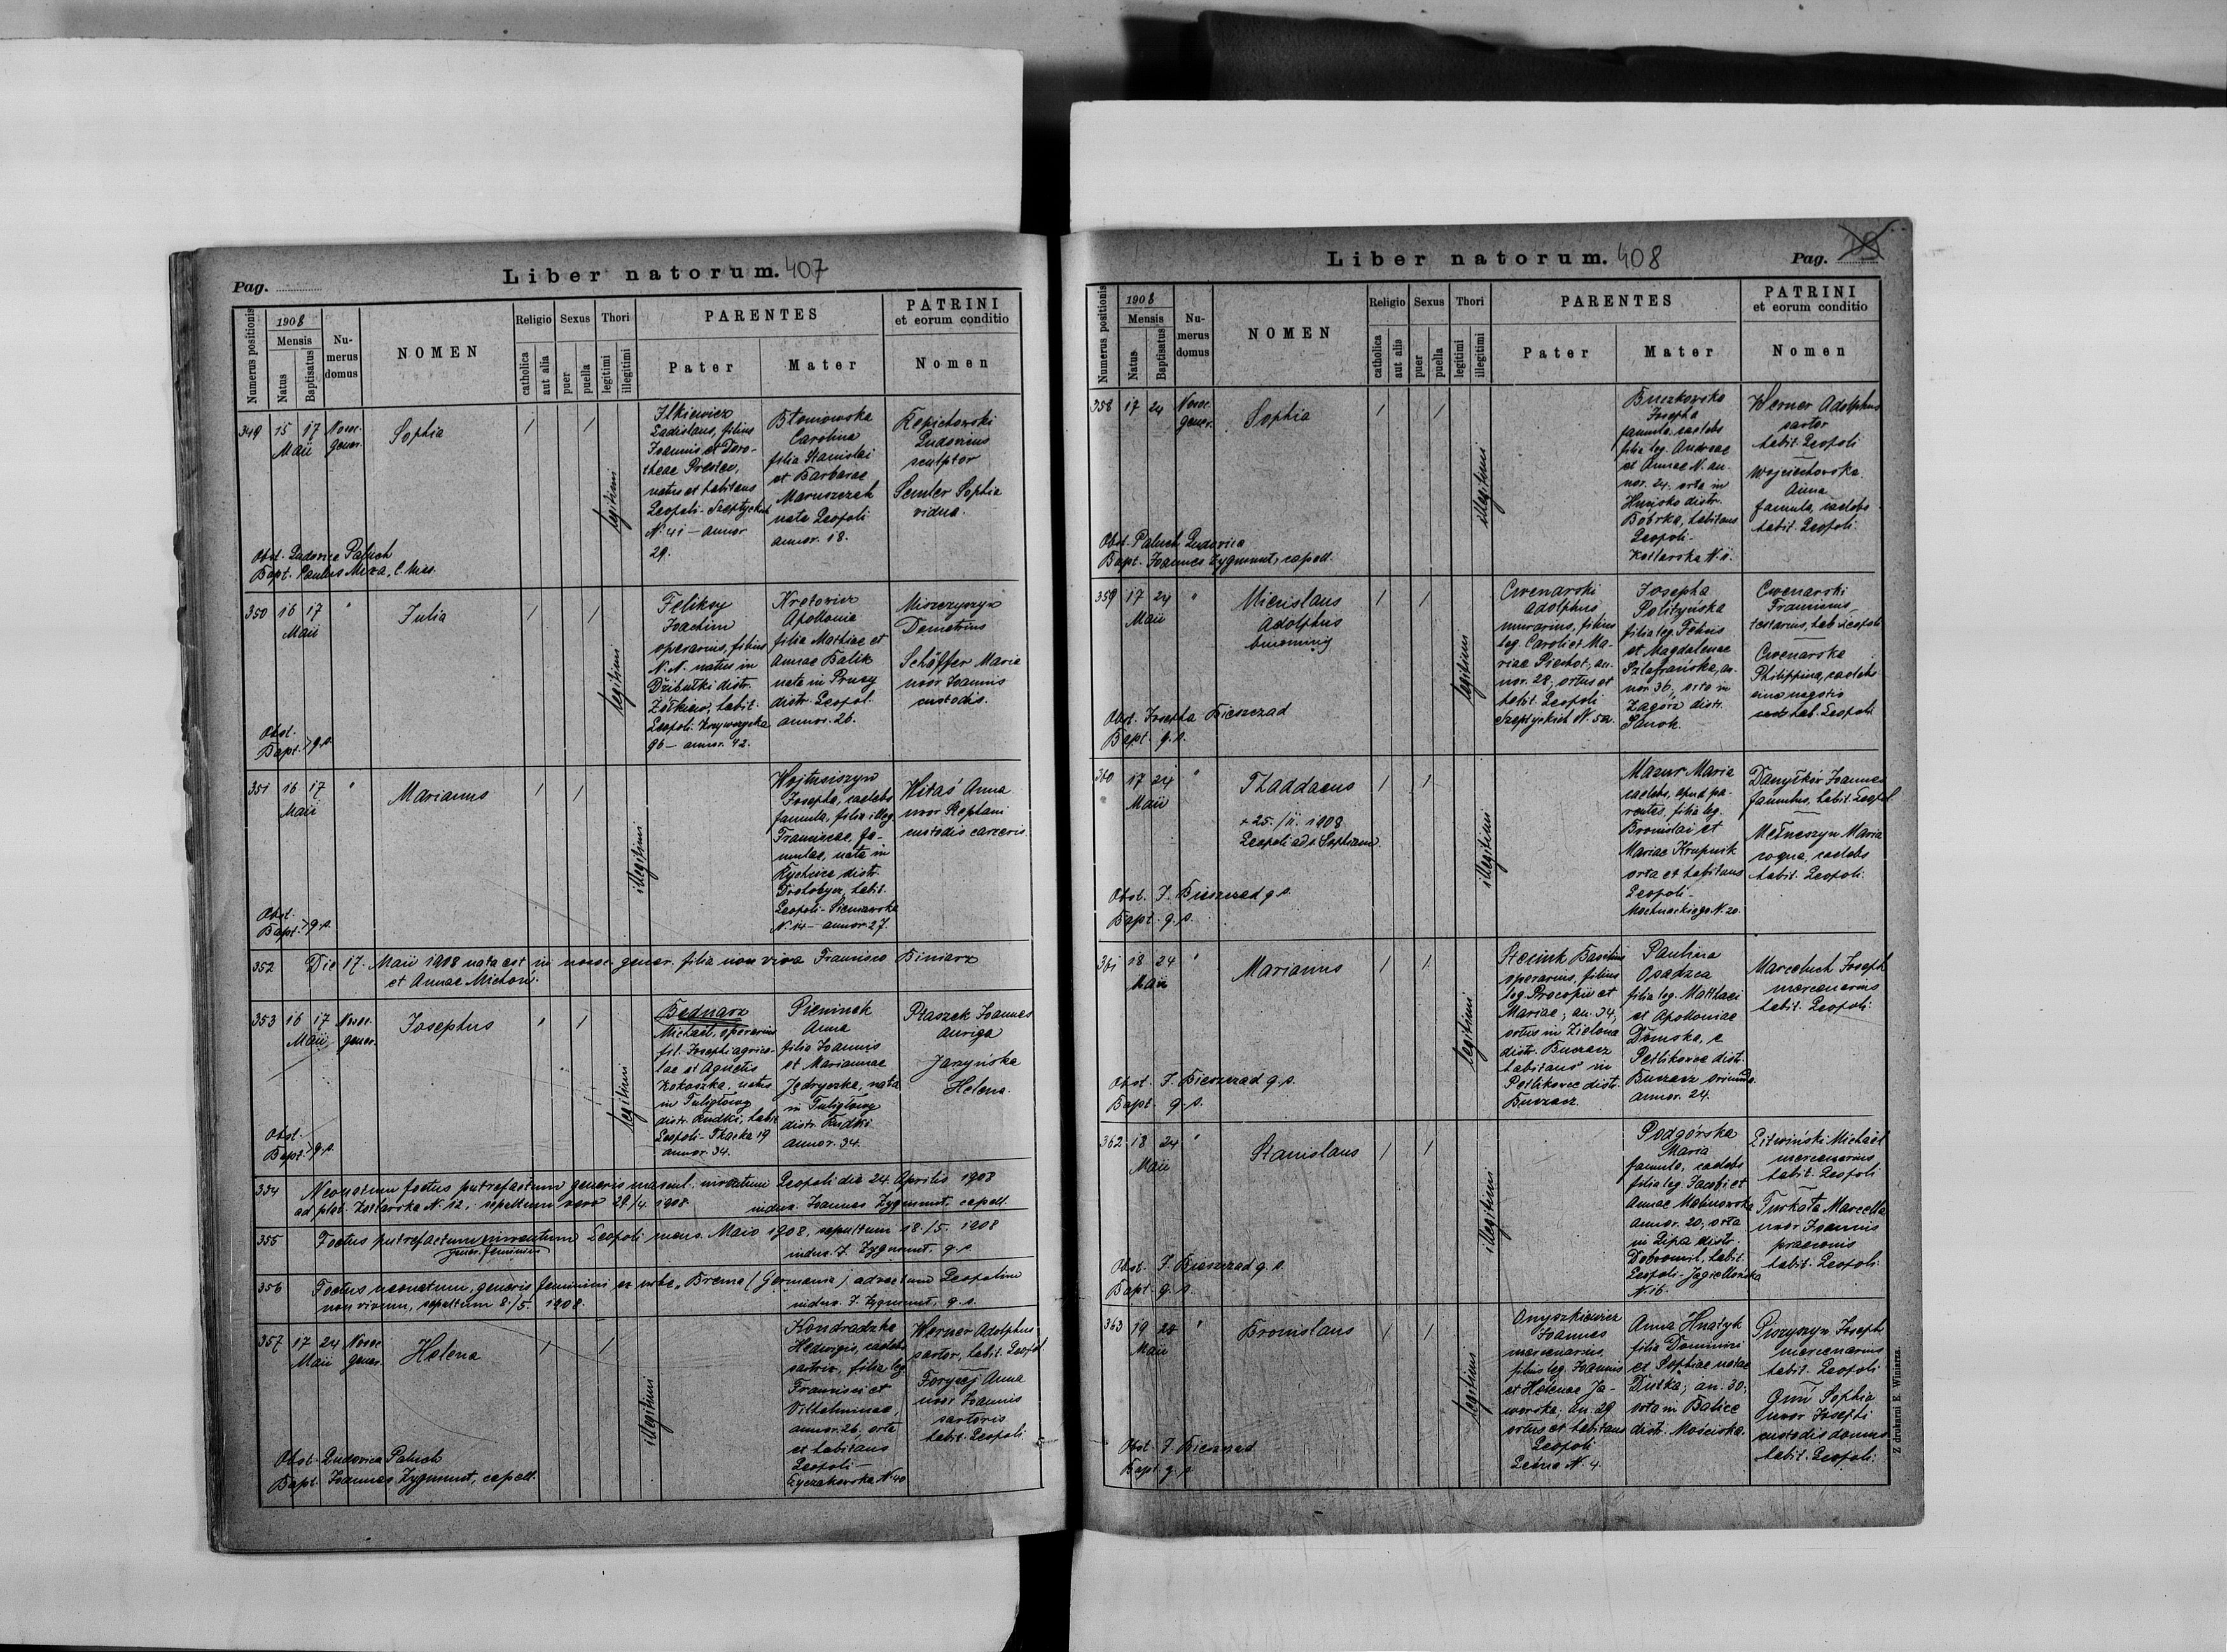 Pag.
Liber natorum. 407
Numerus positionis
1908
Mensis
Natus
Baptisatus
Nu-
merus
domus
NOMEN
Religio
catholica
aut alia
Sexus
puer
puella
Thori
legitimi
illegitimi
PARENTES
Pater
Mater
PATRINI
et eorum conditio
Nomen
349 15 17 Nosoc.
Maii gener.
Sophia
legitimi
Ilkiewicz
Ladislaus, filius
Joannis et Doro-
theae
natus et habitans
Leopoli - Szeptyckich
N. 41 - annor
29.
Carolina
filia Stanislai
et Barbarae
Maruszczak
nata Leopoli
annor. 18.
Kopichowski
Ludovicus
sculptor
Semler Sophia
vidua.
Obst. Ludovica Paluch
Bapt. Paulus
350 16 17 "
Maii
Julia
legitimi
Feliksy
Joachim
operarius, filius
N. N. natus in
Dzibułki distr.
Żółkiew, habit.
Leopoli. Krzywczycka
96 - annor. 42.
Kretowicz
Apollonia
filia Mathiae et
Annae Balik
nata in Prusy
distr. Leopol.
annor. 26.
Miszczyszyn
Demetrius
Schäffer Maria
uxor Joannis
custodis.
Obst.
Bapt. > q. s.
351 16 17 "
Maii
Marianus
illegitimi
Wojtusiszyn
Josepha, caelebs
famula, filia illeg.
Franciscae, fa-
mulae, nata in
Rychcice distr.
Drohobycz, habit.
Leopoli - Sieniawska
N. 14 - annor. 27.
Witaś Anna
uxor Stephani
custodis carceris.
Obst.
Bapt. > q. s.
352 Die 17. Maii 1908 nata est in nosoc. gener. filia non viva Francisco Biniarz
et Annae Michoń.
353 16 17 Nosoc.
Maii gener.
Josephus
legitimi
Bednarz
Michael, operarius
fil. Josephi agrico-
lae et Agnetis
Kokoszka, natus
in Tuligłowy
distr. Rudki, habit
Leopoli - Tkacka 19
annor. 34.
Pieninek
Anna
filia Joannis
et Mariannae
Jędryszka, nata
in Tuligłowy
distr. Rudki
annor. 34.
Ptaszek Joannes
auriga
Jarzyńska
Helena.
Obst.
Bapt. > q. s.
354 Neonatum foetus putrefactum generis mascul. inventum Leopoli die 24. Aprilis 1908
ad plat. Kotlarska N. 12, sepultum vero 29/4 1908. Joannes Zygmunt, capell.
355 Foetus putrefactum inventum Leopoli mens. Maio 1908, sepultum 18./5. 1908
gener. feminini J. Zygmunt, q. s.
356 Foetus neonatum, generis feminini ex urbe „Brema (Germania) advectum Leopolim
non vivum, sepultum 8./5. 1908. J. Zygmunt, q. s.
357 17 24 Nosoc
Maii gener.
Helena
illegitimi
Kondradzka
Hedwigis, caelebs
sartrix, filia leg.
Francisci et
Vilhelminae,
annor. 26, orta
et habitans
Leopoli -
Łyczakowska N. 40
Werner Adolphus
sartor, habit. Leopol.
Forycej Anna
uxor Joannis
sartoris
habit. Leopoli
Obst. Ludovica Paluch
Bapt. Joannes Zygmunt, capell.
Liber natorum. 408
Pag.
Numerus positionis
1908
Mensis
Natus
Baptisatus
Nu-
merus
domus
NOMEN
Religio
catholica
aut alis
Sexus
puer
puella
Thori
legitimi
illegitimi
PARENTES
Pater
Mater
PATRINI
et eorum conditio
Nomen
358 17 24 Nosoc.
gener.
Sophia
illegitimi
Buczkowska
Josepha
famula, caelebs
filia leg. Andreae
et Annae N. an-
nor. 24. orta in
distr.
Bóbrka, habitans
Leopoli -
Kotlarska N. 8.
Werner Adolphus
sartor
habit. Leopoli
Wojciechowska
Anna
famula, caelebs
habit. Leopoli.
Obst. Paluch Ludovica
Bapt. Joannes Zygmunt, capell.
359 17 24 "
Maii
Micislaus
Adolphus
binominis
legitimi
Cwenarski
Adolphus
murarius, filius
leg. Caroli et Ma-
riae Piechot, an-
nor. 28, ortus et
habit. Leopoli
Szeptyckich N. 52.
Josepha
Polityńska
filia leg. Felicis
et Magdalenae
Szlafrańska, an-
nor. 36, orta in
Zagórz distr.
Sanok.
Cwenarski
Franciscus
hab. Leopoli
Cwenarska
Philippina, caelebs
sine negotio
hab. Leopoli
Obst. Josepha Bieszczad
Bapt. q. s.
360 17 24 "
Maii
Thaddaeus
+ 25./11. 1908
Leopoli ad s. Sophiam.
illegitimi
Mazur Maria
caelebs, apud pa-
rentes, filia leg.
Bronislai et
Mariae Krupnik
orta et habitans
Leopoli -
Mochnackiego N. 20.
Danyłków Joannes
famulus, habit. Leopol.
Maria
coqua, caelebs
habit. Leopoli.
Obst. J. Bieszczad q. s.
Bapt. q. s.
361 18 24 "
Maii
Marianus
legitimi
Basilius
operarius, filius
leg. Procopii et
Mariae; an. 34,
ortus in Zielona
distr. Buczacz
habitans in
Petlikowce distr.
Buczacz.
Paulina
Osadzca
filia leg. Matthaei
et Apolloniae
Dumska, e
Petlikowce distr.
Buczacz oriunda.
annor. 24.
Marceluch Joseph
mercenarius
habit. Leopoli.
Obst. J. Bieszczad q. s.
Bapt. q. s.
362 18 24 "
Maii
Stanislaus
illegitimi
Podgórska
Maria
famula, caelebs
filia leg. Jacobi et
Annae Malinowska
annor. 20, orta
in Lipa distr.
Dobromil, habit.
Leopoli - Jagiellońska
N. 16.
Litwiński Michaël
mercenarius
habit. Leopoli
Turkała Marcella
uxor Joannis
praeconis
habit. Leopoli.
Obst. J. Bieszczad q. s.
Bapt. q. s.
363 19 "
Maii
Bronislaus
legitimi
Onyszkiewicz
Joannes
mercenarius,
filius leg. Joannis
et Helenae Ja-
worska, an. 29
ortus et habitans
Leopoli
Leśna N. 4.
Anna Hnatyk
filia Dominici
et Sophiae natae
Dutka; an. 30;
orta in Balice
distr. Mościska.
Piszyszyn Joseph
mercenarius
habit. Leopoli
Sophia
uxor Josephi
custodis domus
habit. Leopoli.
Obst. J. Bieszczad
Bapt. q. s.
Z drukarni E. Winiarza.